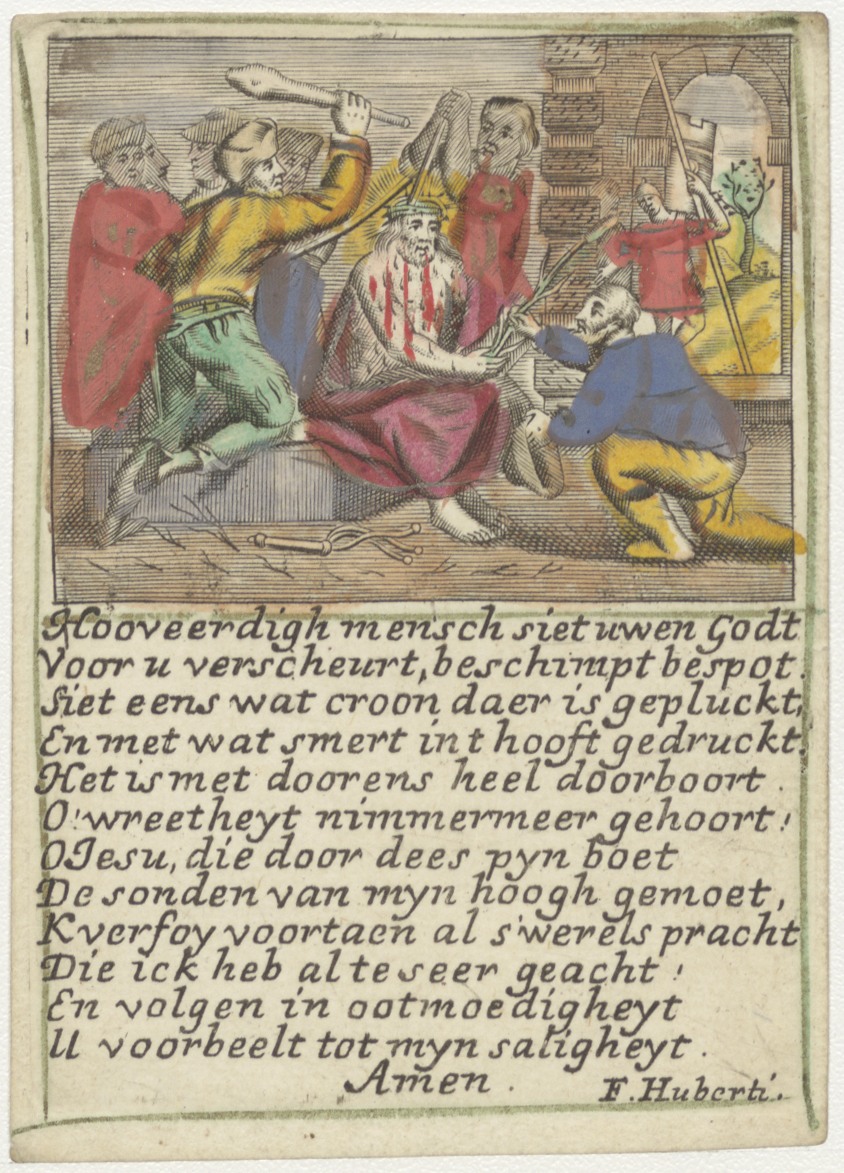 Hooveerdigh mensch siet uwen Godt
Voor u verscheurt, beschimpt bespot.
Siet eens wat croon daer is gepluckt,
En met wat smert int hooft gedruckt.
Het is met doorens heel doorboort.
O! wreetheyt nimmermeer gehoort!
O Jesu, die door dees pyn boet
De sonden van myn hoogh gemoet,
K verfoy voortaen al s'werels pracht
Die ick heb al te seer geacht!
En volgen in ootmoedigheyt
U voorbeelt tot myn saligheyt.
Amen.
F. Huberti.